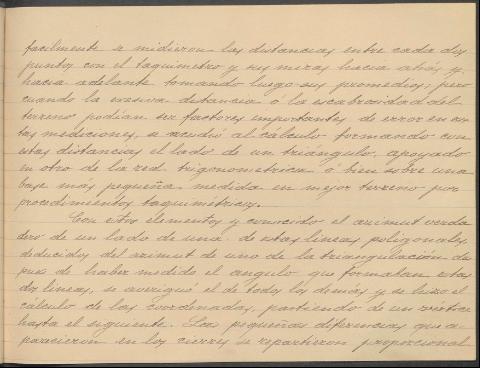 facilmente se midieron las distancias entre cada dos
puntos con el taquímetro y sus miras hacia atrás y
hacia adelante tomando luego sus promedios; pero
cuando la excesiva distancia ó la escabrosidad del
terreno podían ser factores importantes de error en es
tas mediciones, se acudió al cálculo formando con
estas distancias el lado de un triángulo, apoyado
en otro de la red trigonometrica ó bien sobre una
base más pequeña medida en mejor terreno por
procedimientos taquimétricos.
Con estos elementos y conocido el azimut verda
dero de un lado de una de estas lineas poligonales,
deducidos del azimut de uno de la triangulación des
pues de haber medido el angulo que formaban estas
dos líneas, se averiguó el de todos los demás y se hizo el
cálculo de las coordenadas, partiendo de un vértice
hasta el siguiente. Las pequeñas diferencias que a-
parecieron en los cierres se repartieron proporcional